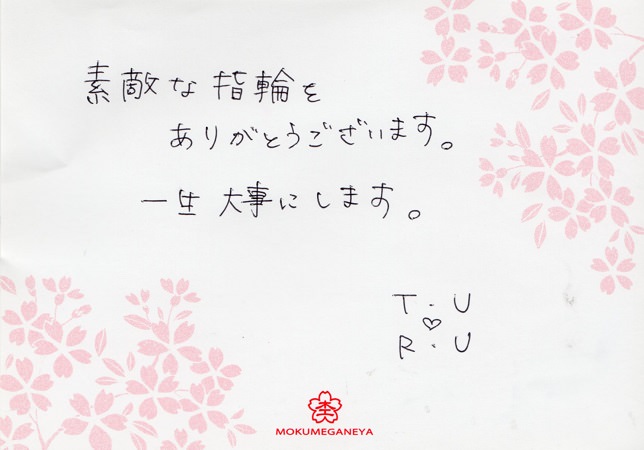 素敵な指輪を
ありがとうございます。
一生大事にします。
T.U
♡
R.U
MOKUMEGANEYA